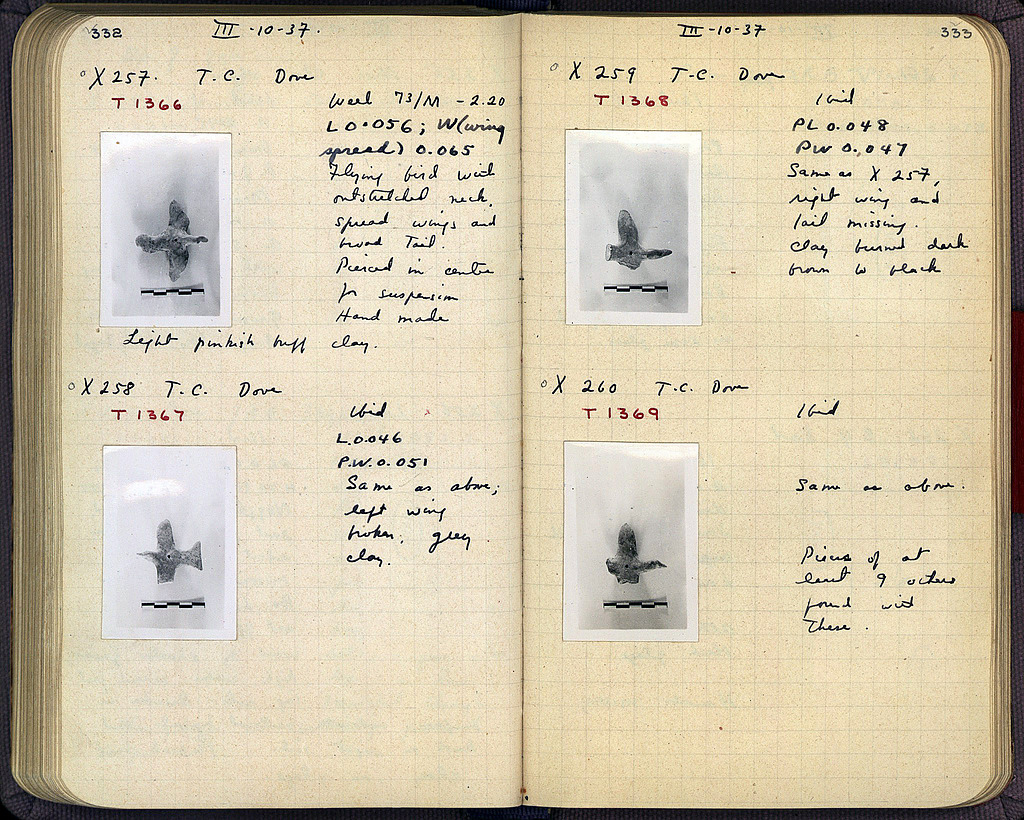 332
III -10-37.
X 257. T.C. Dove
T 1366
Well 73/M -2.20
L 0.056; W(wing
spread) 0.065
Flying bird with
outstretched neck,
spread wings and
broad tail.
Pierced in centre
for suspension
Hand made
Light pinkish buff clay.
X 258 T.C. Dove
T 1367
Ibid
L.0.046
P.W.0.051
Same as above;
left wing
broken, grey
clay.
III -10-37
333
X 259 T.C. Dove
T 1368
Ibid
PL 0.048
PW 0.047
Same as X 257,
right wing and
tail missing.
Clay burned dark
brown to black
X 260 T.C. Dove
T 1369
Ibid
Same as above.
Pieces of at
least 9 others
found with
these.